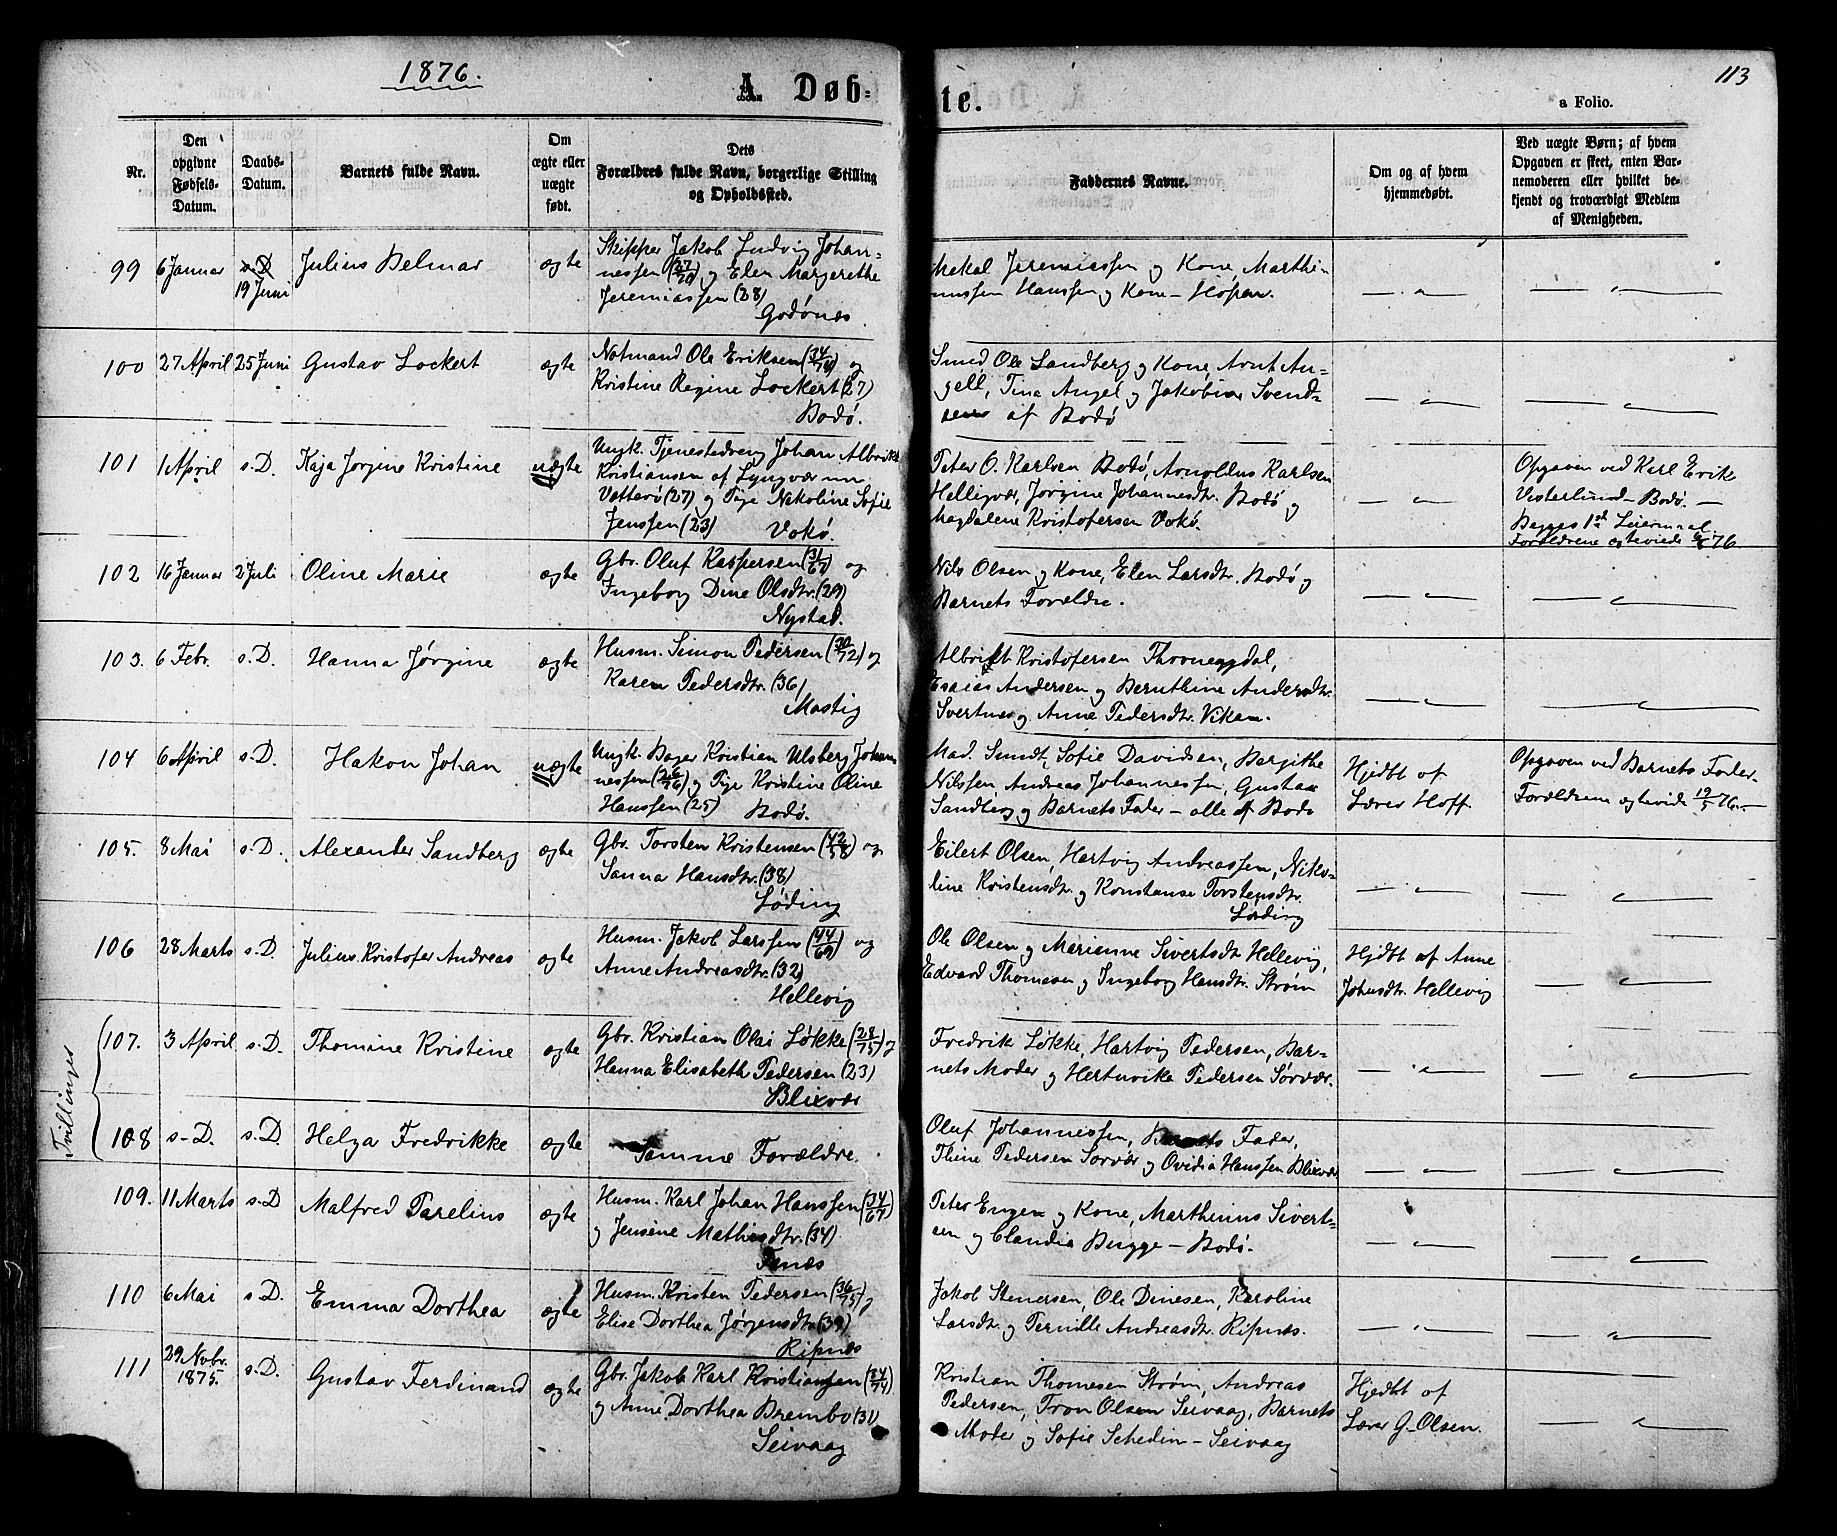 1876.
A. Døb-
te.
113
a Folio.
Nr.
Den opgivne Fødsels-Datum.
Daabs-Datum.
Barnets fulde Navn.
Om ægte eller uægte født.
Dets Forældres fulde Navn, borgerlige Stilling og Opholdssted.
Faddernes Navne.
Om og af hvem hjemmedøbt.
Ved uægte Børn; af hvem Opgaven er skeet, enten Barnemoderen eller hvilket bekjendt og troværdigt Medlem af Menigheden.
99 6 Januar s.D. 19 Juni Julius Delmar ægte
Skipper Jakob Ludvig Johan-
nessen (27/70) og Elen Margrethe
Jeremiassen (28)
Godønes
Mekal Jeremiassen og Kone, Marthi-
nussen Hanssen og Kone - Hopen.
100 27 April 25 Juni Gustav Lockert ægte
Notmand Ole Eriksen (34/74) og
Kristine Regine Lockert (27)
Bodø.
Smed Ole Sandberg og Kone, Arnt An-
gell, Tina Angel og Jakobine Svend-
sen af Bodø
101 1 April s.D. Kaja Jørgine Kristine uægte
Ungk. Tjenestedreng Johan Albrikt
Kristiansen af Lyngvær
Vatterø (27) og Pige Nekoline Sofie
Jenssen (23) Vokø.
Peter O. Karlsen Bodø, Arnoldus Karlsen
Helligvær, Jørgine Johannesdtr. Bodø og
Magdalene Kristofersen Vokø.
Opgaven ved Karl Erik
Vesterlund - Bodø. -
Begges 1st Leiermaal
Forældrene ægteviede 76
102 16 Januar 2 Juli Oline Marie ægte
Gbr. Oluf Kaspersen (31/67) og
Ingeborg Dine Olsdtr. (29)
Nystad.
Nils Olsen og Kone, Elen Larsdtr. Bodø og
Barnets Forældre.
103. 6 Febr. s.D. Hanna Jørgine ægte
Husm. Simon Pedersen (30/72) og
Karen Pedersdtr. (36)
Mostig
Albrikt Kristofersen Thornesydal,
Esaias Andersen og Bernthine Andersdtr.
Svertnes og Anne Pedersdtr. Viken.
104 6 April s.D. Hakon Johan uægte
Ungk. Bager Kristian Ulsberg Johan-
nessen (26/76) og Pige Kristine Oline
Hanssen (25) Bodø.
Mad. Smidt, Sofie Davidsen, Bergithe
Nilssen, Andreas Johannessen, Gustav
Sandberg og Barnets Fader - alle af Bodø
Hjdbt af
Lærer Hoff
Opgaven ved Barnets Fader.
Forældrene ægteviede 19/5 76.
105. 8 Mai s.D. Alexander Sandberg ægte
Gbr. Torsten Kristensen (42/58) og
Sanna Hansdtr. (38)
Løding
Eilert Olsen, Hartvig Andreassen, Niko-
line Kristensdtr. og Konstanse Torstensdtr.
Løding
106 28 Marts s.D. Julius Kristofer Andreas ægte
Husm. Jakob Larssen (44/69) og
Anne Andreasdtr. (32)
Hellevig
Ole Olsen og Marianne Sivertsdtr. Hellevig,
Edvard Thomesen og Ingeborg Hansdtr. Strøm
Hjdbt af Anne
Johnsdtr. Hellevig
Tvillinger
107. 3 April s.D. Thomine Kristine ægte
Gbr. Kristian Olai Løkke (28/75) og
Hanna Elisabeth Pedersen (23)
Blixvær
Fredrik Løkke, Hartvig Pedersen, Bar-
nets Moder og Hertnvike Pedersen Sørvær.
108 s.D. s.D. Helga Fredrikke ægte
Samme Forældre.
Oluf Johannessen, Barnets Fader,
Thine Pedersen Sørvær og Ovidia Hanssen Blixvær
109. 11 Marts s.D. Malfred Parelius ægte
Husm. Karl Johan Hanssen (34/67)
og Jensine Mathisdtr. (34)
Fenæs
Peter Engen og Kone, Marthinus Sivert-
sen og Claudia Bugge - Bodø.
110 6 Mai s.D. Emma Dorthea ægte
Husm. Kristen Pedersen (36/75) og
Elise Dorthea Jørgensdtr. (39)
Ripnes
Jakob Stenersen, Ole Dinesen, Karoline
Larsdtr. og Pernille Andreasdtr. Ripnes.
111 29 Novbr. 1875. s.D. Gustav Ferdinand ægte
Gbr. Jakob Karl Kristiansen (34/74)
og Anne Dorthea Brembo (31)
Seivaag
Kristian Thomesen Strøm, Andreas
Pedersen, Tron Olsen Seivaag, Barnets
Moder og Sofie Schedin - Seivaag
Hjedbt af
Lærer G. Olsen.